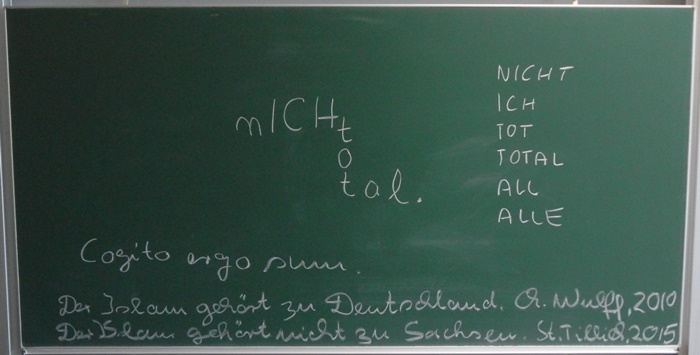 nICHt
o
tal.
NICHT
ICH
TOT
TOTAL
ALL
ALLE
Cogito ergo sum.
Der Islam gehört zu Deutschland. Ch. Wulff, 2010
Der Islam gehört nicht zu Sachsen. St. Tillich, 2015